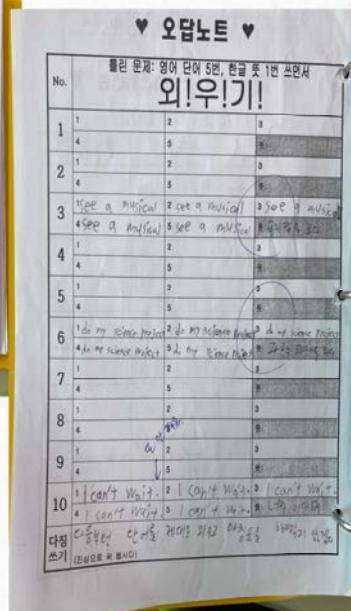 ♥ 오답노트 ♥
틀린 문제: 영어 단어 5번, 한글 뜻 1번 쓰면서
No.
외!우!기!
1
1 2 3
4 5 뜻
2
1 2 3
4 5 뜻
3
1 see a musical 2 see a musical 3 see a musical
4 see a musical 5 see a musical 뜻
4
1 2 3
4 5 뜻
5
1 2 3
4 5 뜻
6
1 do my science project 2 do my science project 3 do my science project
4 do my science project 5 do my science project 뜻
7
1 2 3
4 5 뜻
8
1 2 3
4 5 뜻
9
1 2 3
4 5 뜻
10
1 I can't wait. 2 I can't wait. 3 I can't wait.
4 I can't wait. 5 I can't wait. 뜻 너무 기대돼
다짐 다음부턴 단어를 제대로 외우고
쓰기 (진심으로 써 봅시다)